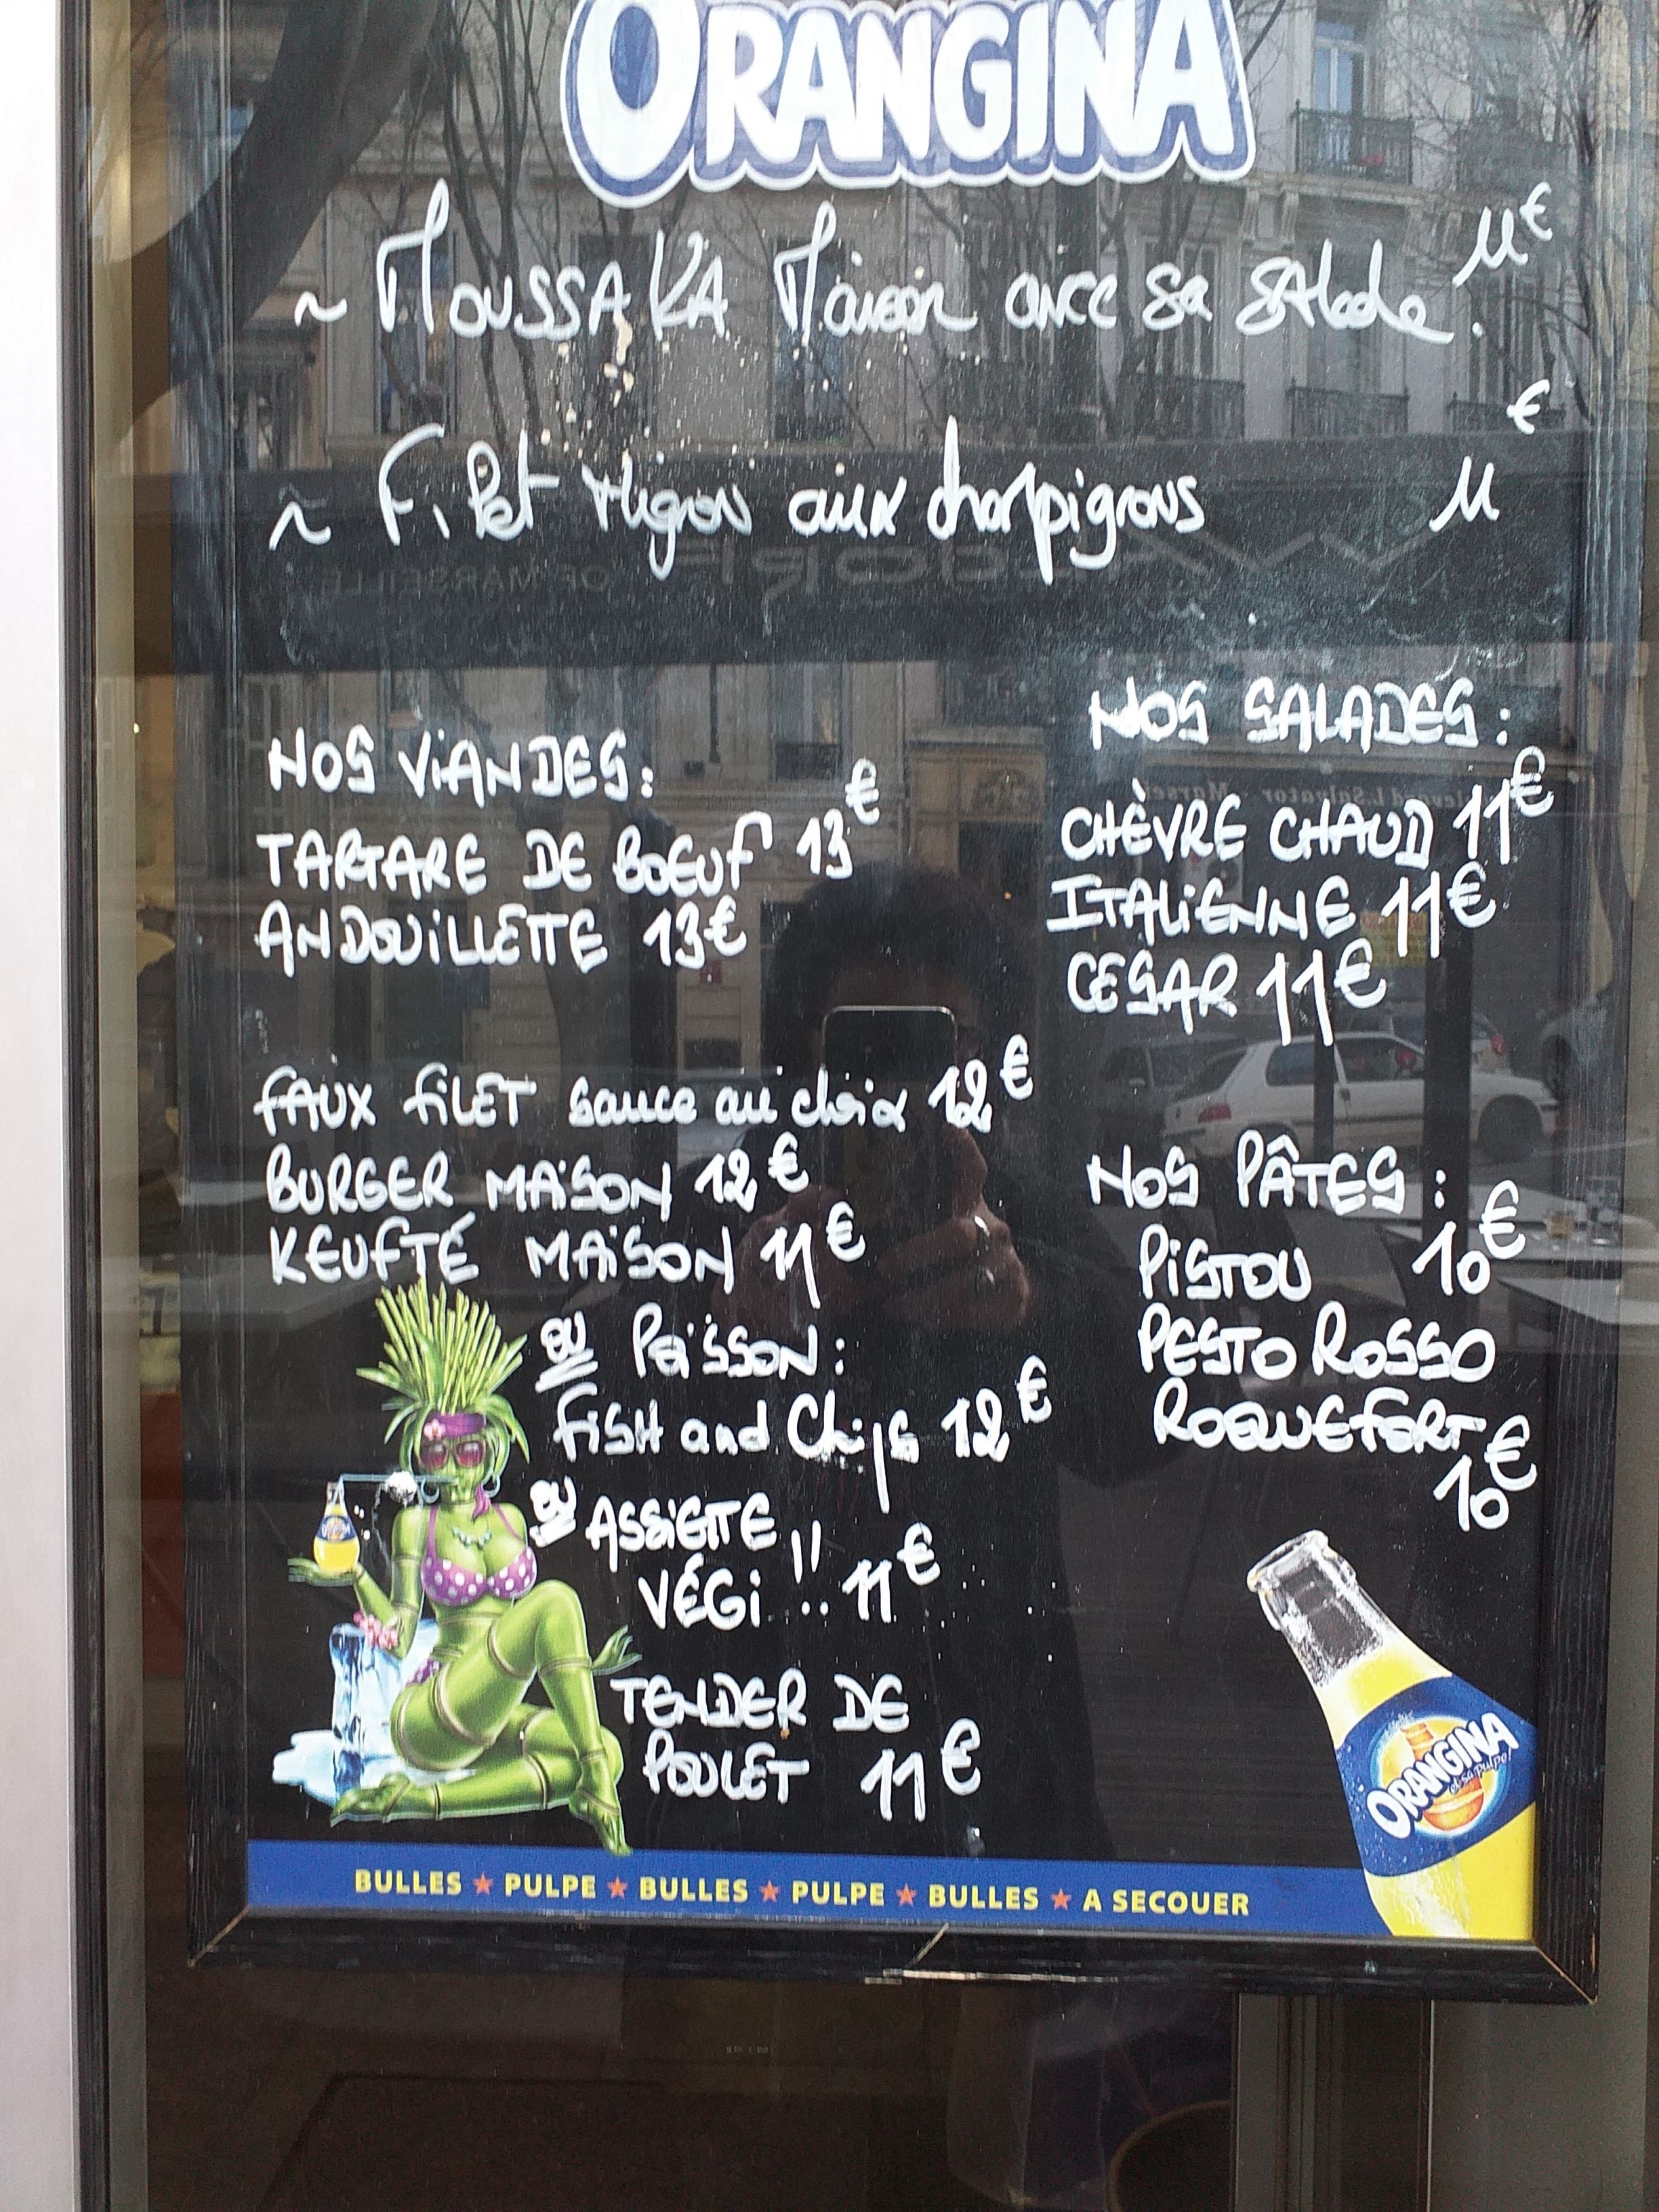 ORANGINA
~ MOUSSAKA Maison avec sa sAlade. 11€
~ Filet Mignon aux champignons 11€
NOS ViANDES:
TARTARE DE BOEUF 13€
ANDOUiLLETTE 13€
FAUX FiLET sauce au choix 12€
BURGER MAiSON 12€
KEUFTÉ MAiSON 11€
OU POiSSON:
FiSH and Chips 12€
OU ASSiETTE
VÉGi !! 11€
TENDER DE
POULET 11€
NOS SALADES:
CHÈVRE CHAUD 11€
ITALiENNE 11€
CESAR 11€
NOS PÂTES:
PiSTOU 10€
PESTO ROSSO
ROQUEFORT
10€
ORANGINA
et sa pulpe!
BULLES ★ PULPE ★ BULLES ★ PULPE ★ BULLES ★ A SECOUER